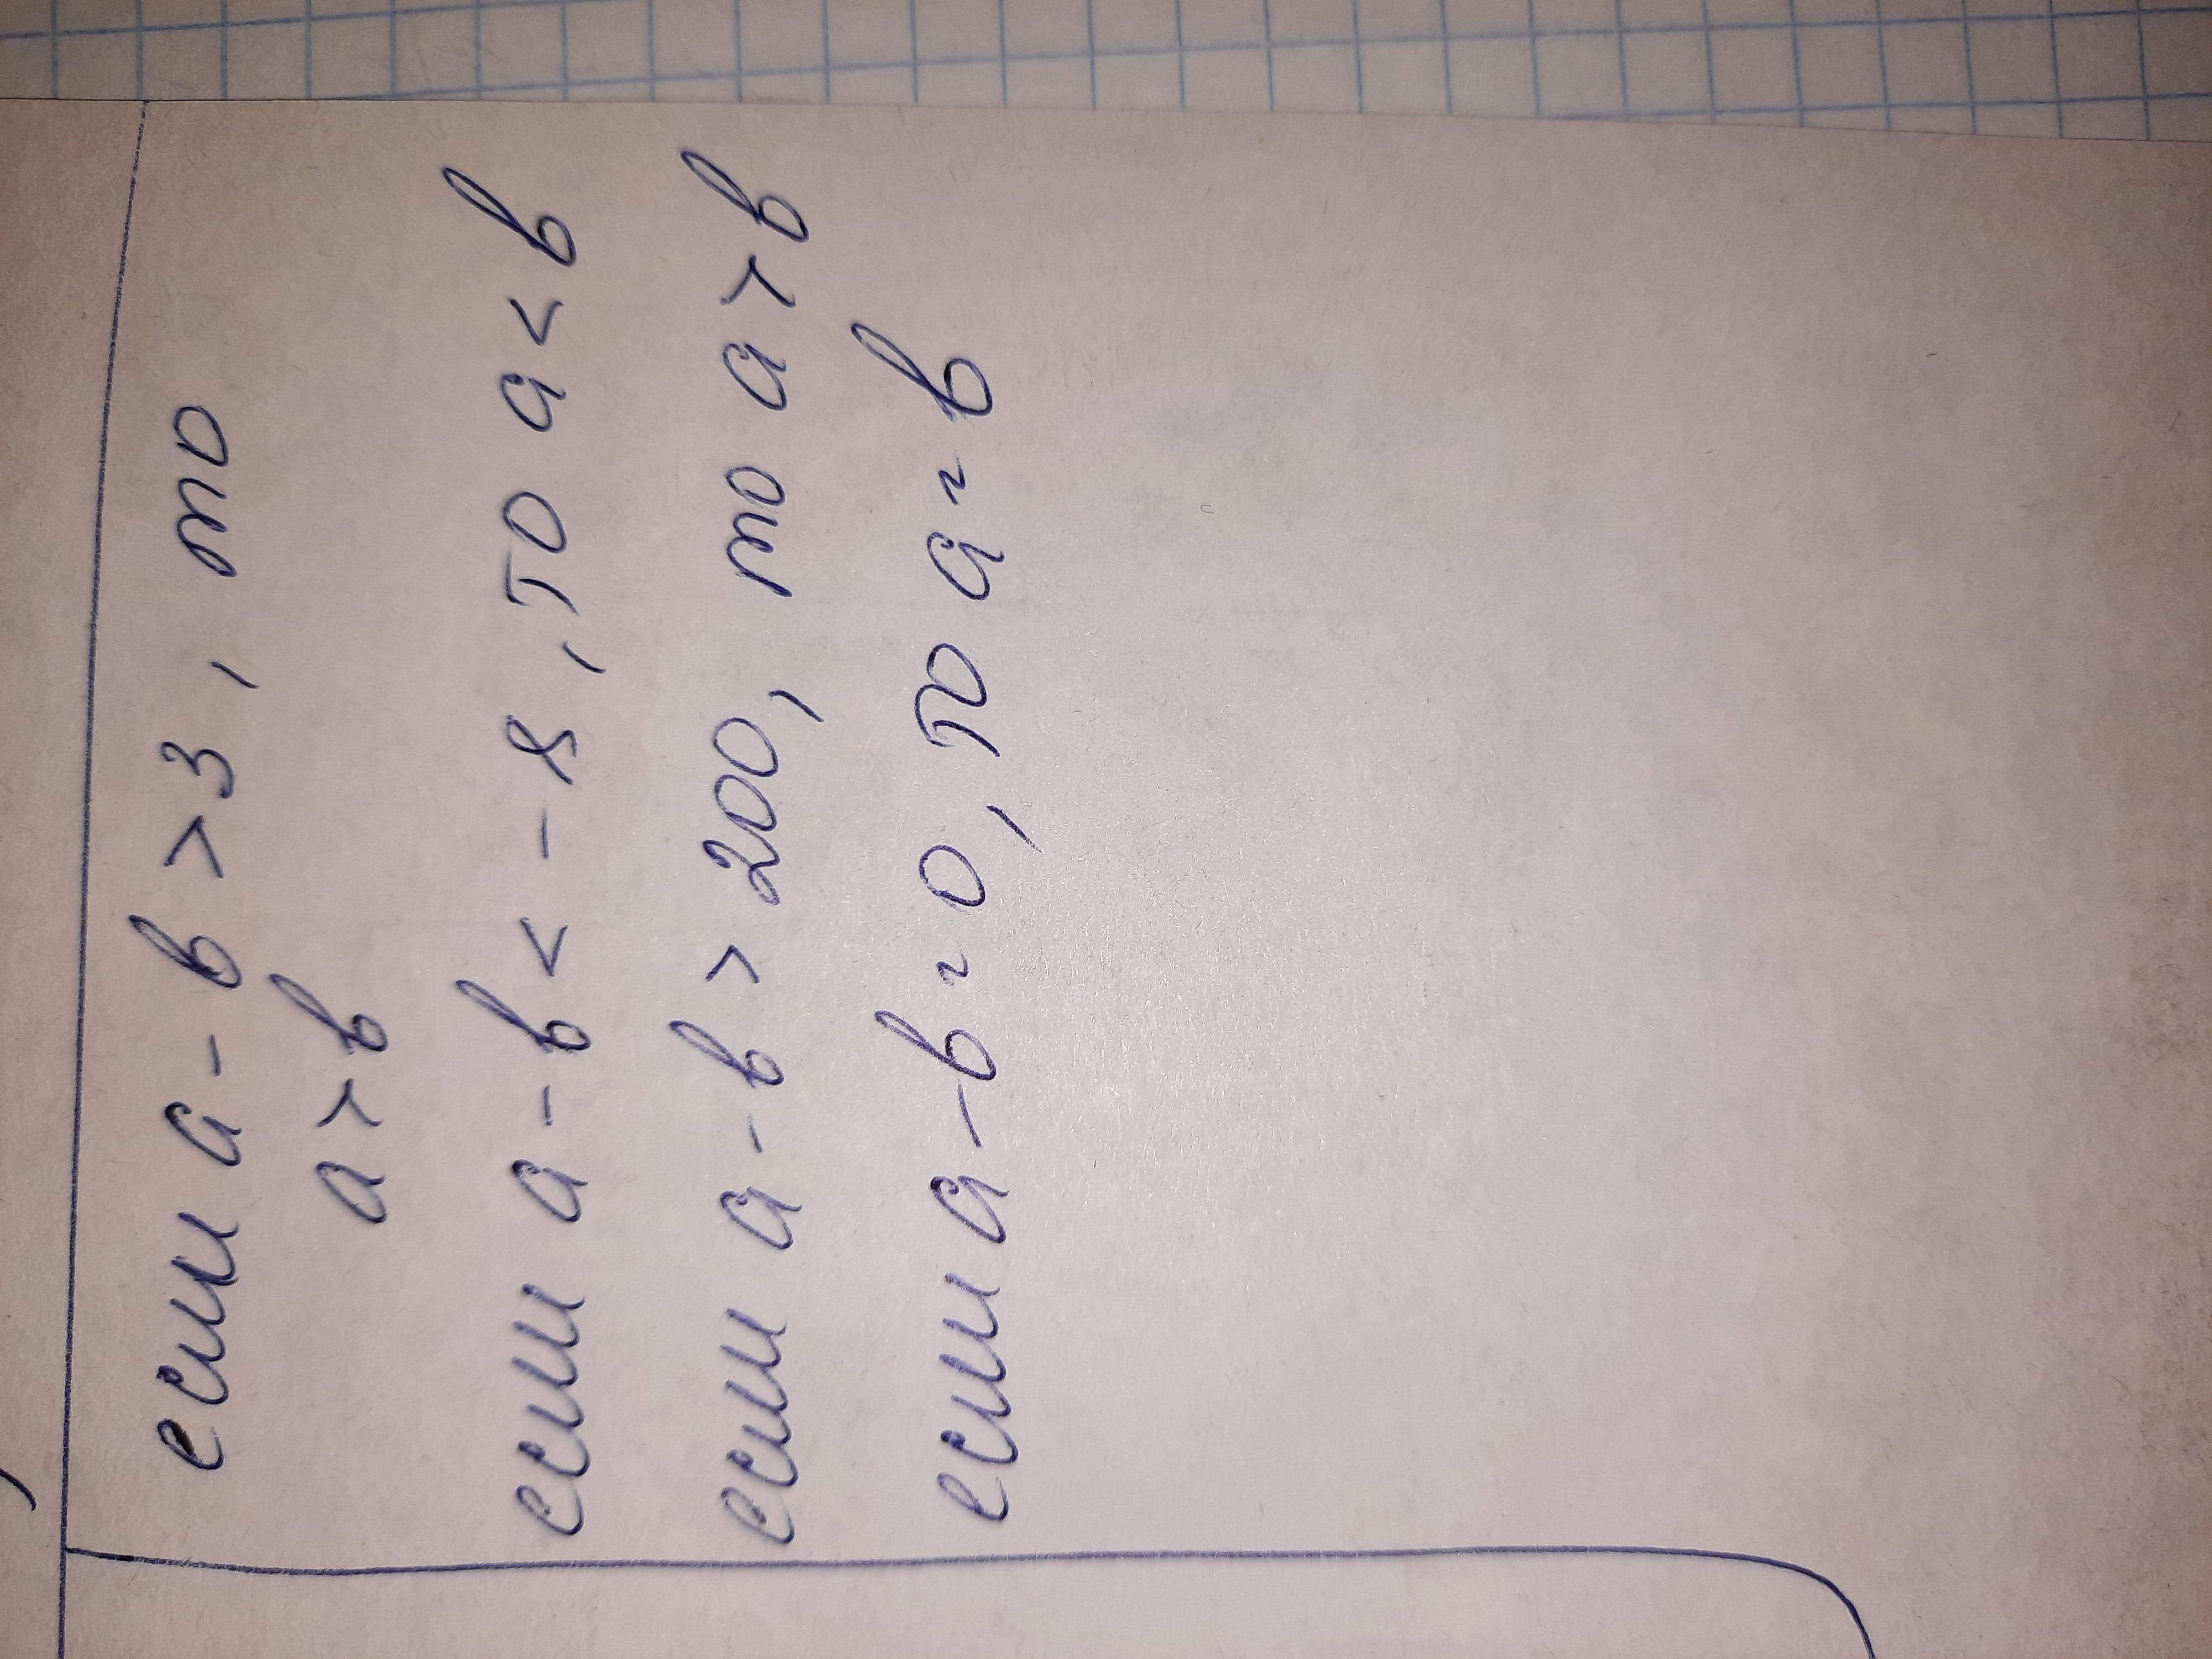 если а - в > 3, то
а > в
если а - в < - 8, то а < в
если а - в > 200, то а > в
если а - в = 0, то а = в